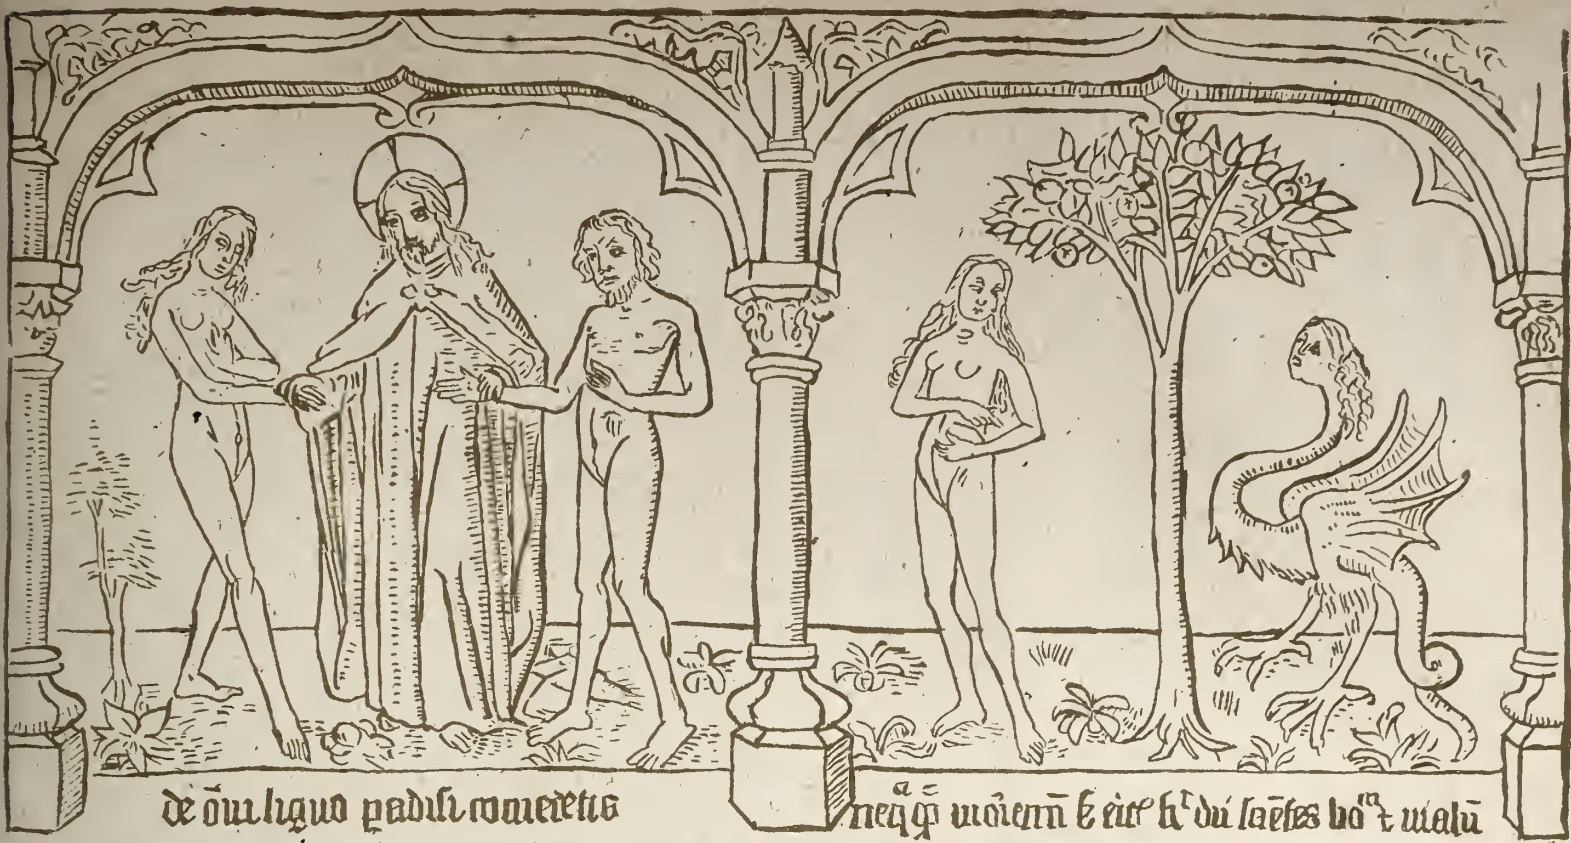 de ōni ligno ꝑadisi comedetis
neqᷓq̄ moriemī ẞ eritꝭ sʳ dii sciētes boⁿ ⁊ malū